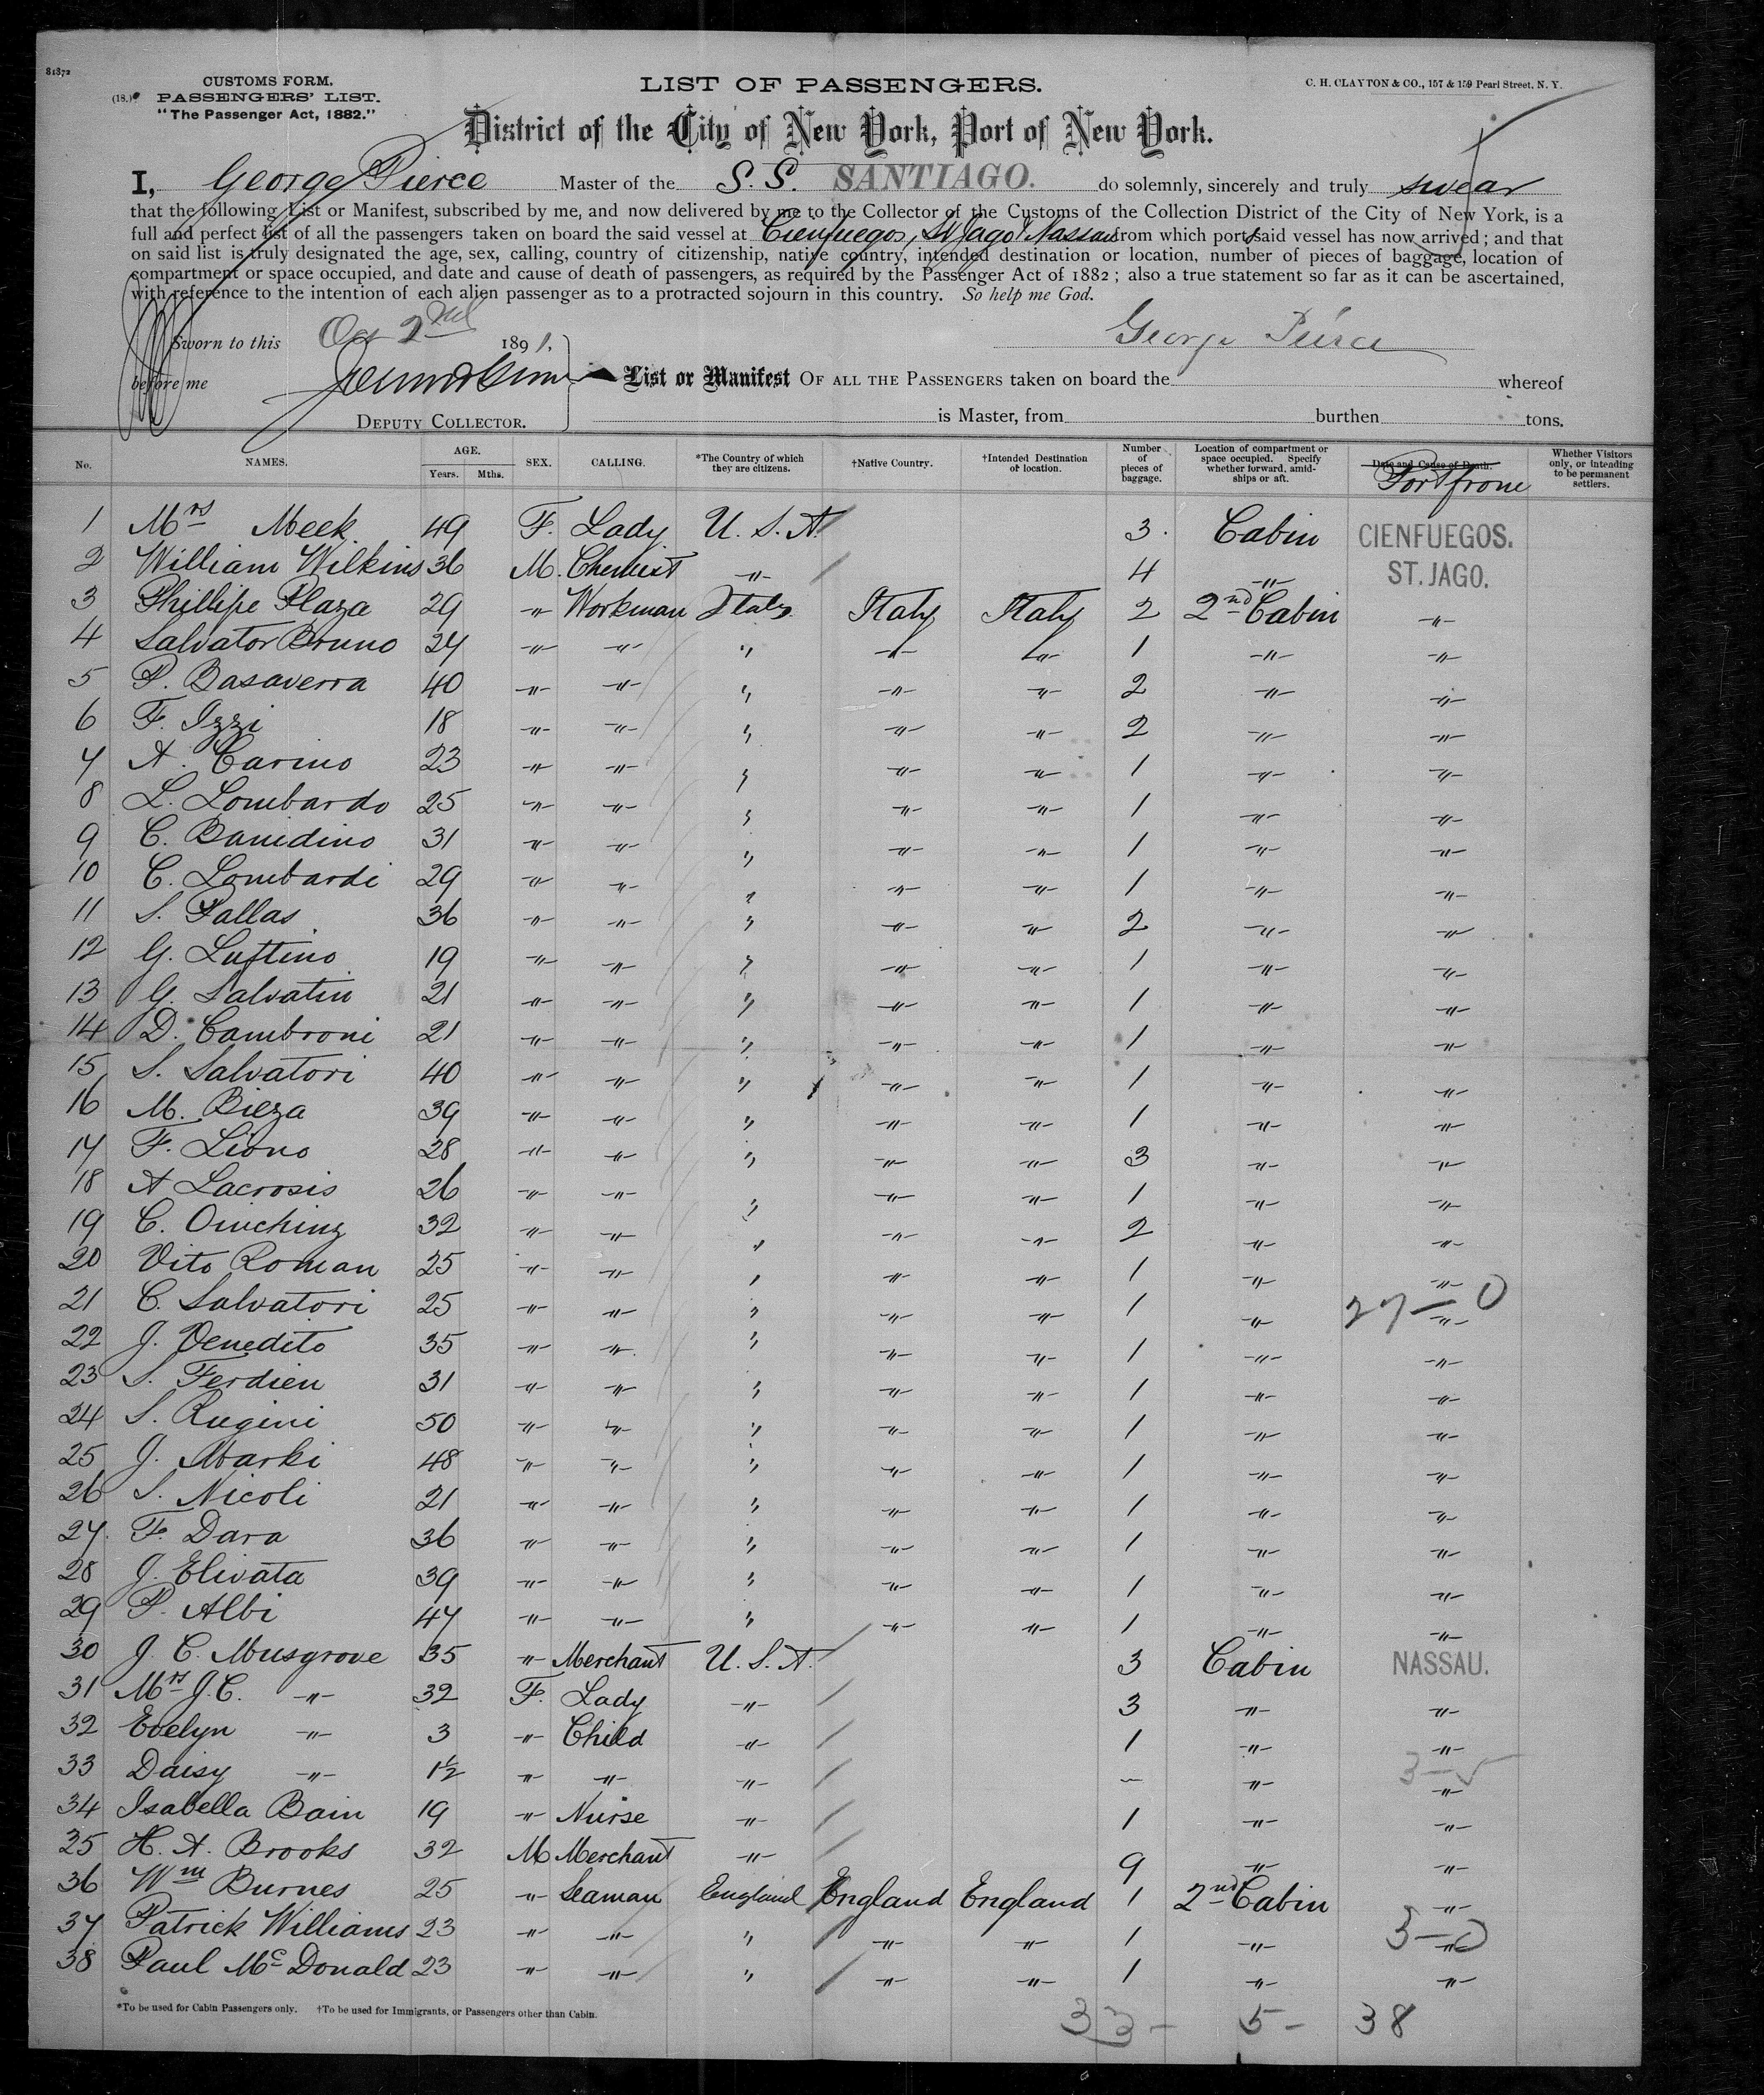 81872
CUSTOMS FORM.
(18.) PASSENGERS' LIST.
"The Passenger Act, 1882."
LIST OF PASSENGERS.
C. H. CLAYTON & CO., 157 & 159 Pearl Street, N. Y.
District of the City of New York, Port of New York.
I, George Pierce Master of the S. S. SANTIAGO. do solemnly, sincerely and truly swear
that the following List or Manifest, subscribed by me, and now delivered by me to the Collector of the Customs of the Collection District of the City of New York, is a
full and perfect list of all the passengers taken on board the said vessel at Cienfuegos, St Jago & Nassau from which ports said vessel has now arrived; and that
on said list is truly designated the age, sex, calling, country of citizenship, native country, intended destination or location, number of pieces of baggage, location of
compartment or space occupied, and date and cause of death of passengers, as required by the Passenger Act of 1882; also a true statement so far as it can be ascertained,
with reference to the intention of each alien passenger as to a protracted sojourn in this country. So help me God.
Sworn to this Oct 2nd 1891,
George Pierce
before me
List or Manifest OF ALL THE PASSENGERS taken on board the whereof
DEPUTY COLLECTOR.
is Master, from burthen tons.
No. NAMES. AGE. Years. Mths. SEX. CALLING. *The Country of which they are citizens. †Native Country. †Intended Destination or location. Number of pieces of baggage. Location of compartment or space occupied. Specify whether forward, amidships or aft. Date and Cause of Death. Port from Whether Visitors only, or intending to be permanent settlers.
1 Mrs Meek 49 F. Lady U. S. A. 3 Cabin CIENFUEGOS.
2 William Wilkins 36 M. Chemist " 4 " ST. JAGO.
3 Phillipe Plaza 29 " Workman Italy Italy Italy 2 2nd Cabin "
4 Salvator Bruno 24 " " " " " 1 " "
5 P. Basaverra 40 " " " " " 2 " "
6 F. Izzi 18 " " " " " 2 " "
7 A. Carino 23 " " " " " 1 " "
8 L. Lombardo 25 " " " " " 1 " "
9 C. Banidino 31 " " " " " 1 " "
10 C. Lombardi 29 " " " " " 1 " "
11 S. Pallas 36 " " " " " 2 " "
12 G. Luftino 19 " " " " " 1 " "
13 G. Salvatin 21 " " " " " 1 " "
14 D. Cambroni 21 " " " " " 1 " "
15 S. Salvatori 40 " " " " " 1 " "
16 M. Bieza 39 " " " " " 1 " "
17 F. Liono 28 " " " " " 3 " "
18 A Lacrosis 26 " " " " " 1 " "
19 C. 32 " " " " " 2 " "
20 Vito Roman 25 " " " " " 1 " "
21 C. Salvatori 25 " " " " " 1 " " 27—0
22 J. Venedito 35 " " " " " 1 " "
23 S. Ferdien 31 " " " " " 1 " "
24 S. Rugini 50 " " " " " 1 " "
25 J. Marki 48 " " " " " 1 " "
26 S. Nicoli 21 " " " " " 1 " "
27. F. Dara 36 " " " " " 1 " "
28 J. Elivata 39 " " " " " 1 " "
29 P. Albi 47 " " " " " 1 " "
30 J. C. Musgrove 35 " Merchant U. S. A. 3 Cabin NASSAU.
31 Mrs J. C. " 32 F. Lady " 3 " "
32 Evelyn " 3 " Child " 1 " "
33 Daisy " 1½ " " " – " " 3—5
34 Isabella Bain 19 " Nurse " 1 " "
35 H. A. Brooks 32 M Merchant " 9 " "
36 Wm Burnes 25 " Seaman England England England 1 2nd Cabin "
37 Patrick Williams 23 " " " " " 1 " " 3—0
38 Paul McDonald 23 " " " " " 1 " "
*To be used for Cabin Passengers only. †To be used for Immigrants, or Passengers other than Cabin.
33— 5— 38